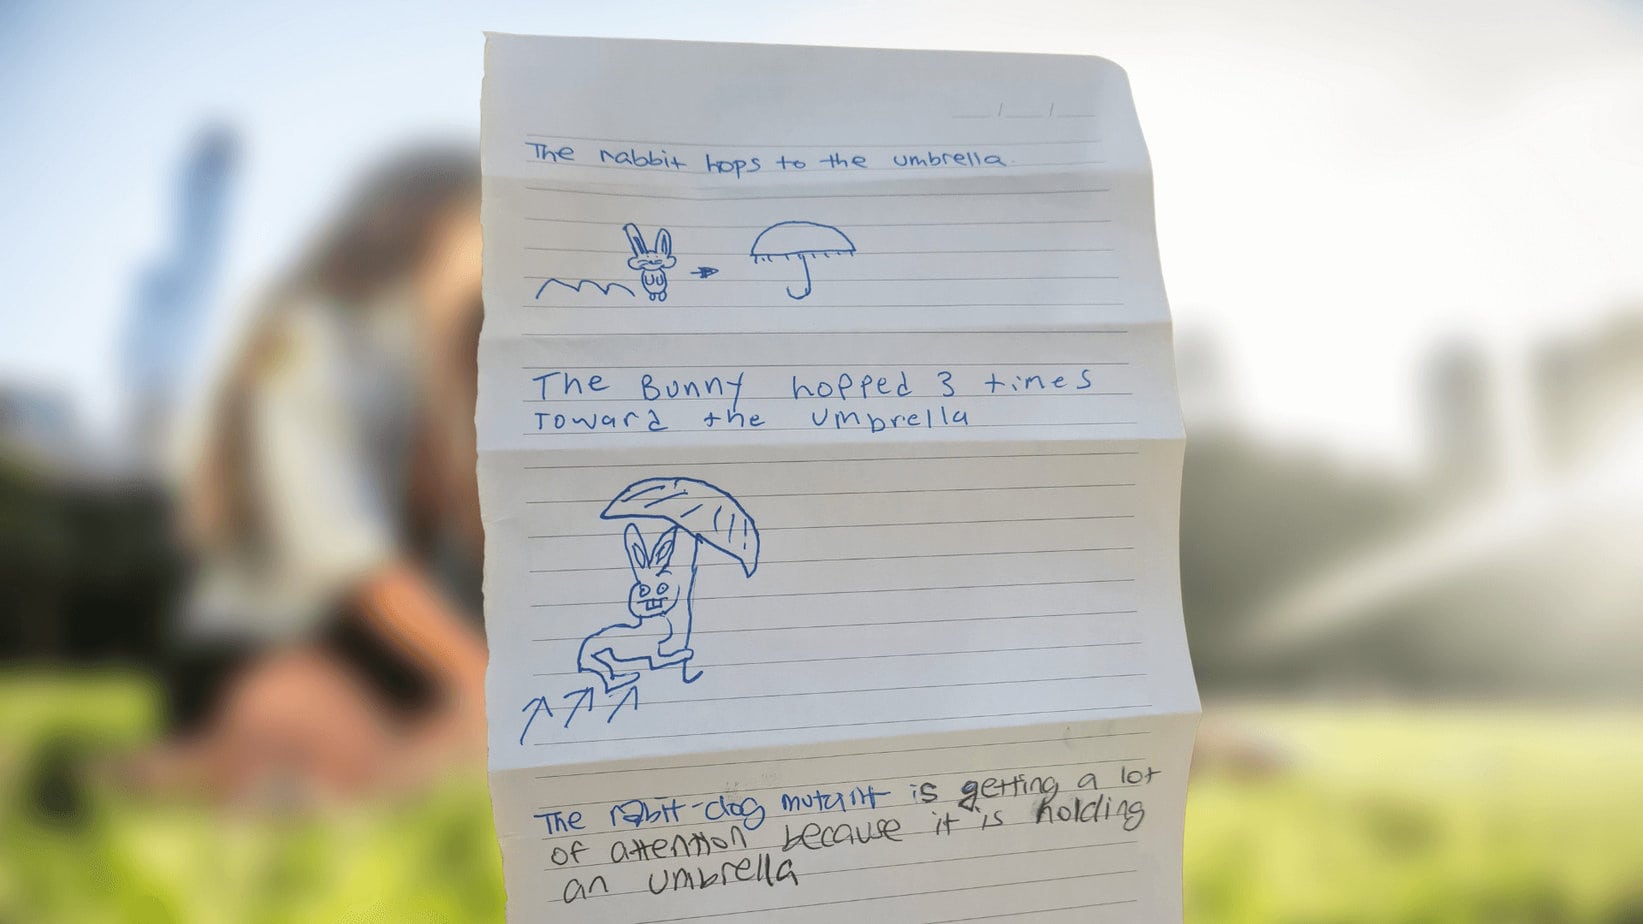 The rabbit hops to the umbrella.
The Bunny hopped 3 times
Toward the umbrella
The rabit-dog mutant is getting a lot
of attention because it is holding
an umbrella